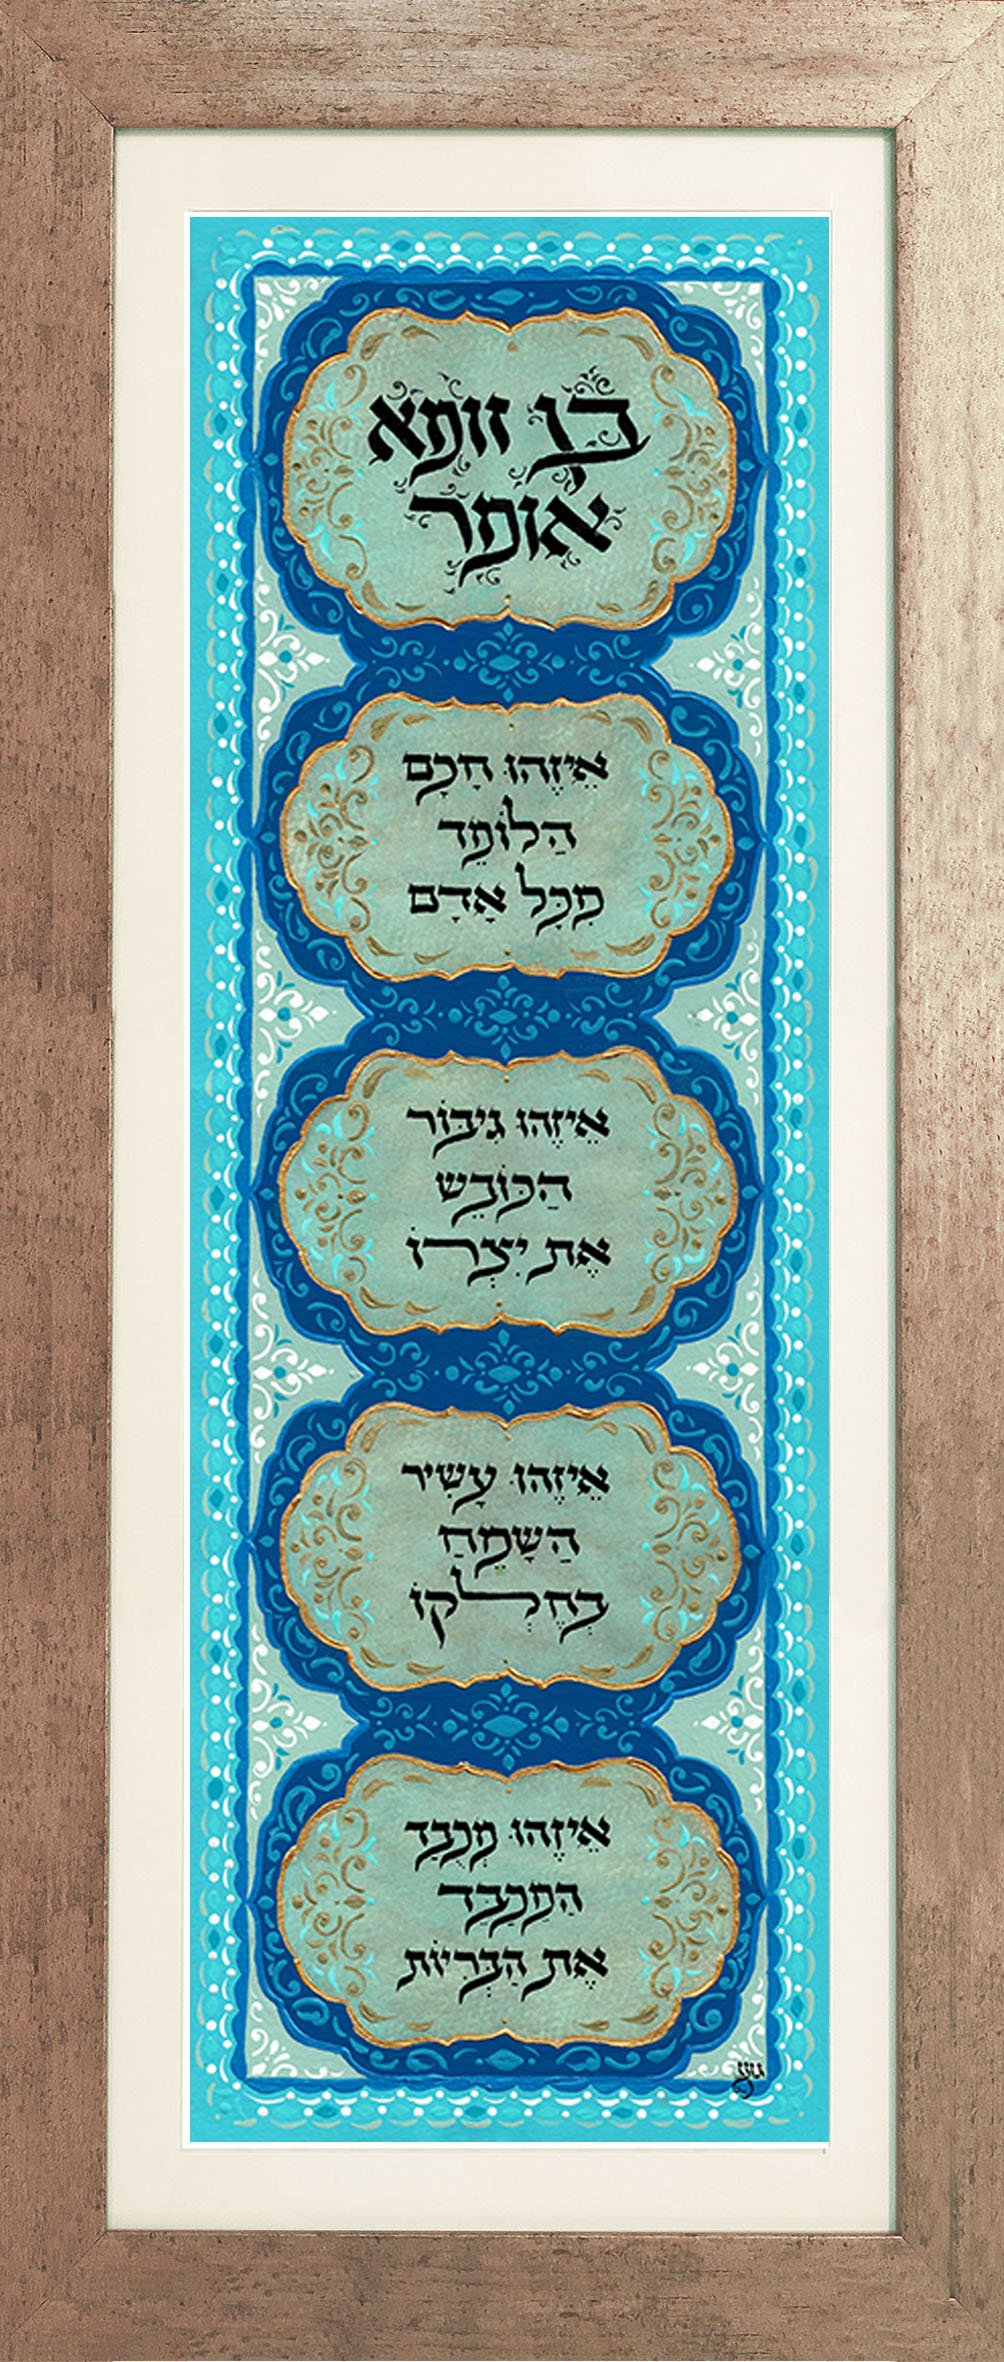 בֶּן זוֹמָא
אוֹמֵר
אֵיזֶהוּ חָכָם
הַלוֹמֵד
מִכָּל אָדָם
אֵיזֶהוּ גִיבּוֹר
הַכּוֹבֵשׁ
אֶת יִצְרוֹ
אֵיזֶהוּ עָשִׁיר
הַשָּׂמֵחַ
בְּחֶלְקוֹ
אֵיזֶהוּ מְכֻבָּד
הַמְכַבֵּד
אֶת הַבְּרִיּוֹת